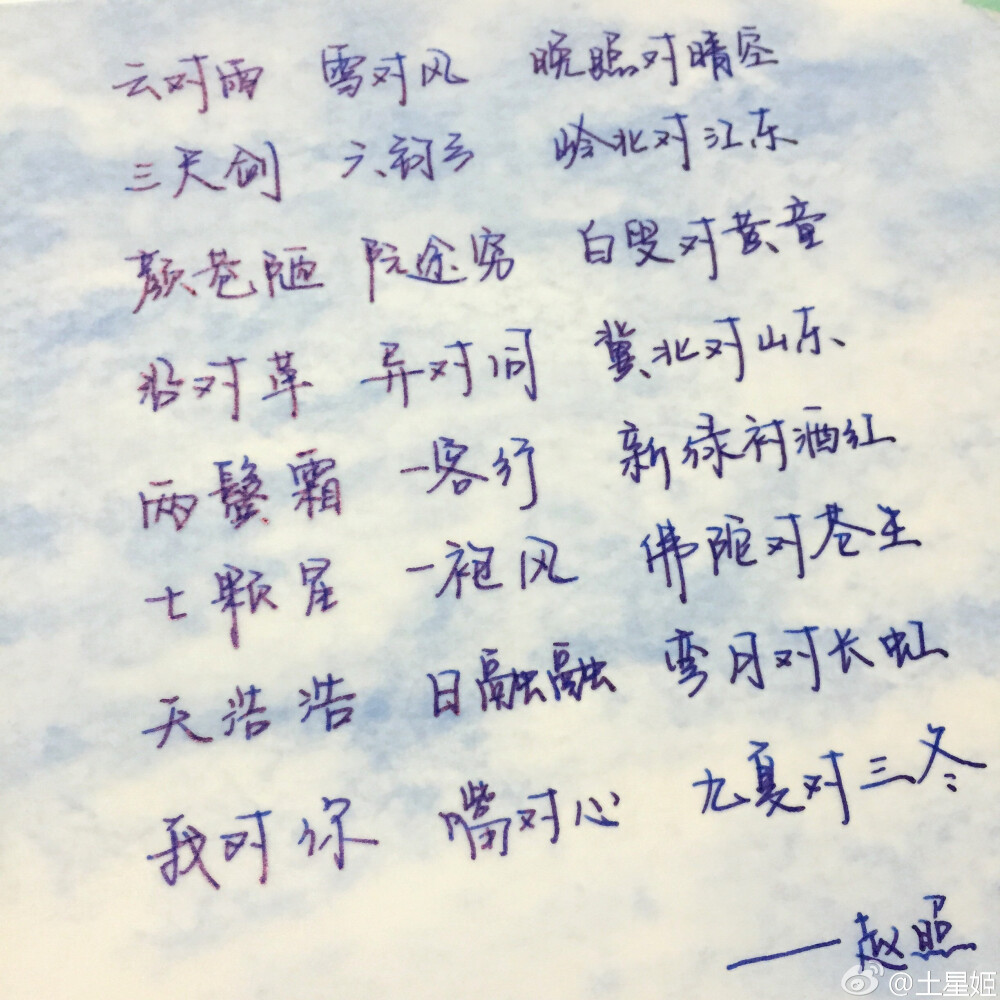 云对雨 雪对风 晚照对晴空
三尺剑 六钧弓 岭北对江东
颜巷陋 阮途穷 白叟对黄童
沿对革 异对同 冀北对山东
两鬓霜 一客行 新绿衬酒红
七颗星 一袍风 佛陀对苍生
天浩浩 日融融 弯月对长虹
我对你 嘴对心 九夏对三冬
——赵照
@土星姬